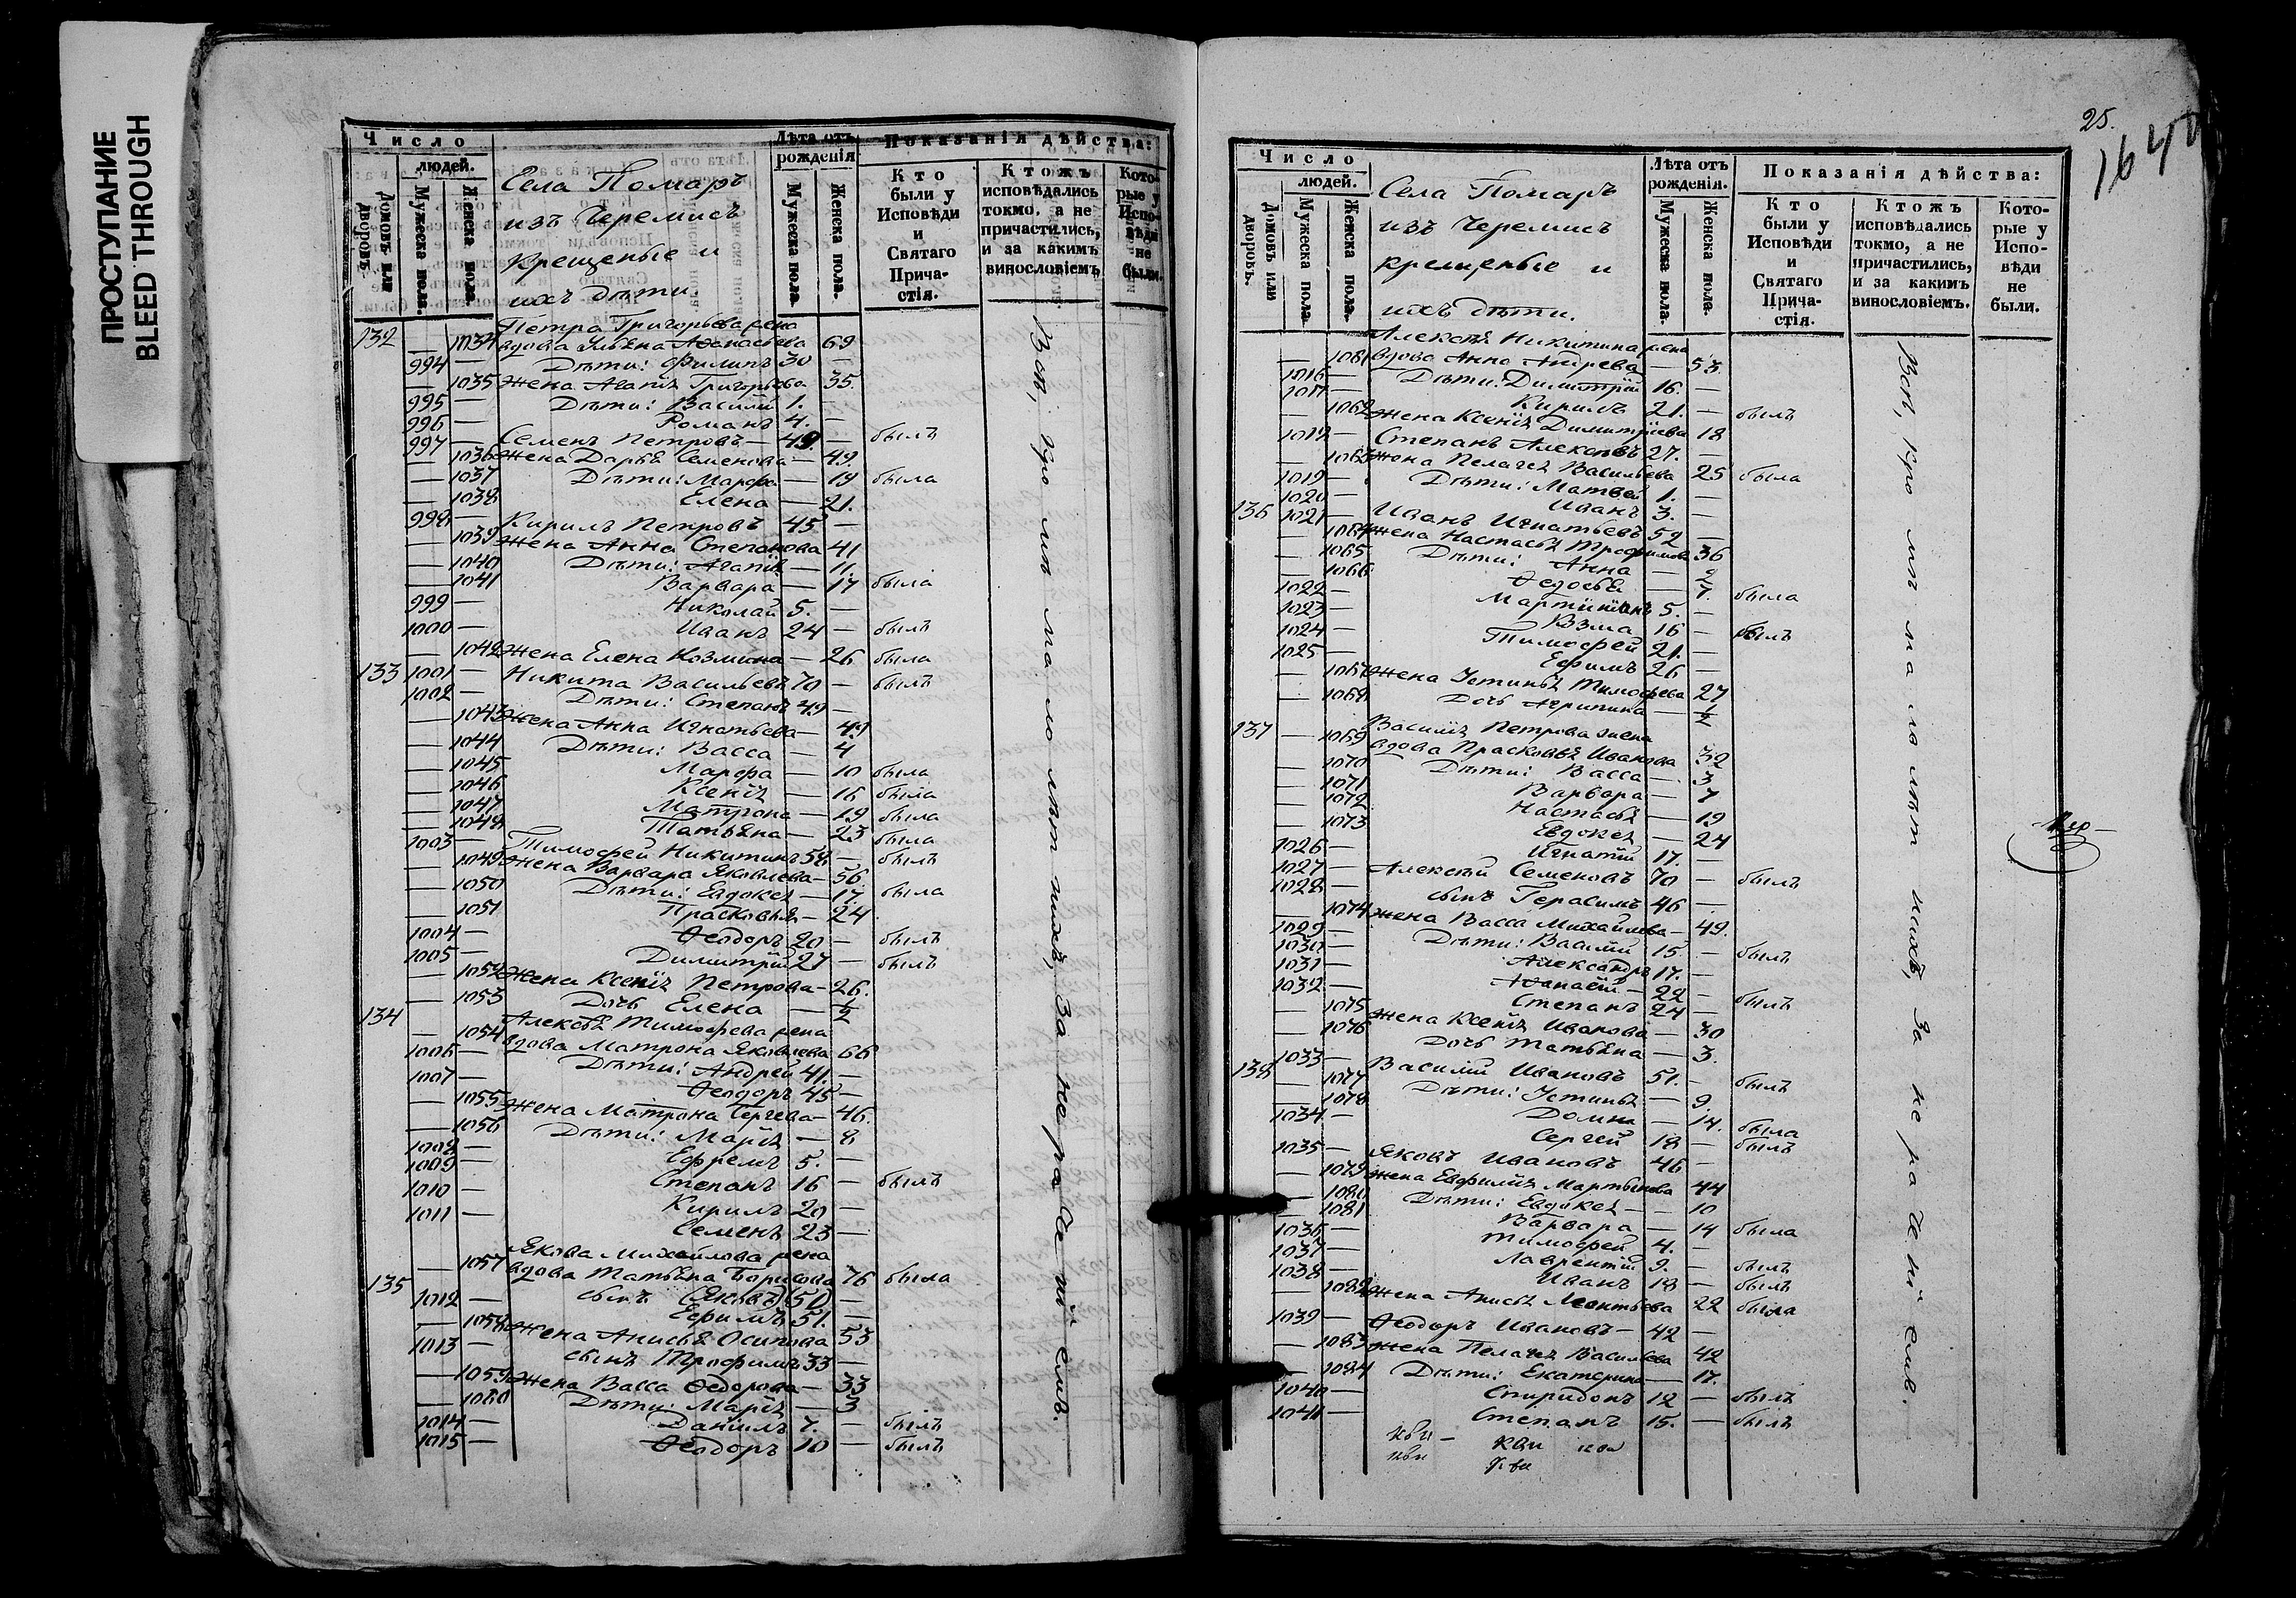 ПРОСТУПАНИЕ
BLEED THROUGH
Число
людей.
Домовъ или дворовъ.
Мужеска пола.
Женска пола.
Села Помаръ
изъ Черемисъ
крещеные и
ихъ дѣти
Лѣта отъ рожденія
Мужеска пола.
Женска пола.
Показанія дѣйства:
Кто были у Исповѣди и Святаго Прича-стія.
Ктожъ исповѣдались токмо, а не причастились, и за какимъ винословіемъ.
Кото-рые у Испо-вѣди не были.
132 Петра Григорьева жена
— 1034 вдова Ульяна Афанасьева 69
994 — Дѣти: Филипъ 30 —
— 1035 Жена Агапія Григорьева 35.
995 — Дѣти: Василій 1. —
996 — Романъ 4. —
997 — Семенъ Петровъ — 49. — былъ
— 1036 Жена Дарья Семенова — 49.
— 1037 Дѣти: Марфа — 19 была
— 1038 Елена — 21.
998 — Кирилъ Петровъ 45 —
— 1039 Жена Анна Степанова 41
— 1040 Дѣти: Агапія — 11.
— 1041 Варвара — 17 была
999 — Николай 5. —
1000 — Иванъ 24 — былъ
— 1042 Жена Елена Козмина — 26 была
133 1001 — Никита Васильевъ 70 — былъ
1002 — Дѣти: Степанъ 49 —
— 1043 Жена Анна Игнатьева — 49
— 1044 Дѣти: Васса — 4
— 1045 Марфа — 10 была
— 1046 Ксенія — 16 была
— 1047 Матрона — 19 была
— 1048 Татьяна — 23 была
1003 — Тимофей Никитинъ 58. — былъ
— 1049 Жена Варвара Яковлева — 56
— 1050 Дѣти: Евдокея — 17. была
— 1051 Прасковья — 24
1004 — Ѳеодоръ 20 — былъ
1005 — Димитрій 27 — былъ
— 1052 Жена Ксенія Петрова — 26.
— 1053 Дочь Елена — ½
134 Алексѣя Тимофева жена
— 1054 вдова Матрона Яковлева 66
1006 — Дѣти: Андрей 41. —
1007 — Ѳеодоръ 45 —
— 1055 Жена Матрона Сергева — 46.
— 1056 Дѣти: Марія — 8
1008 — Ефремъ 5. —
1009 — Степанъ 16 — былъ
1010 — Кирилъ 20 —
1011 — Семенъ 23 —
Якова Михайлова жена
135 — 1057 вдова Татьяна Борисова 76 была
1012 — сынъ (Яковъ) (50) —
Ефимъ 51.
— 1058 Жена Анисья Осипова 53
1013 — сынъ Трофимъ 33 —
— 1059 Жена Васса Ѳедорова — 33
— 1060 Дѣти: Марія — 3
1014 — Даніилъ 7. — былъ
1015 — Ѳеодоръ 10 — былъ
25.
Число
людей.
Домовъ или дворовъ.
Мужеска пола.
Женска пола.
Села Помаръ
изъ Черемисъ
крещеные и
ихъ дѣти.
Лѣта отъ рожденія.
Мужеска пола.
Женска пола.
Показанія дѣйства:
Кто были у Исповѣди и Святаго Прича-стія.
Ктожъ исповѣдались токмо, а не причастились, и за какимъ винословіемъ.
Кото-рые у Испо-вѣди не были.
Алексѣя Никитина жена
— 1061 вдова Анна Андрева — 53.
1016 — Дѣти: Димитрій 16. —
1017 — Кирилъ 21. — былъ
— 1062 Жена Ксенія Димитріева 18
1018 — Степанъ Алексѣевъ 27. —
— 1063 Жена Пелагея Васильева 25 была
1019 — Дѣти: Матвей 1. —
1020 — Иванъ 3. —
136 1021 — Иванъ Игнатьевъ 52 —
— 1064 Жена Настасья Трофимова 36
— 1065 Дѣти: Анна — 2
— 1066 Ѳедосья — 7. была
1022 — Мартиніанъ 5. —
1023 — Козма 16 — былъ
1024 — Тимофей 21. —
1025 — Ефимъ 26 —
— 1067 Жена Устинья Тимофева 27
— 1068 Дочь Агрипина — ½
137 Василія Петрова жена
— 1069 вдова Прасковья Иванова 32
— 1070 Дѣти: Васса — 3
— 1071 Варвара — 7
— 1072 Настасья — 19
— 1073 Евдокея — 24
1026 — Игнатій 17. —
1027 — Алексѣй Семеновъ 70 — былъ
1028 — сынъ Герасимъ 46 —
— 1074 Жена Васса Михайлова — 49.
1029 — Дѣти: Василій 15. — былъ
1030 — Александръ 17. —
1031 — Афанасій — 22 —
1032 — Степанъ 24 — былъ
— 1075 Жена Ксенія Иванова — 30
— 1076 Дочь Татьяна — 3.
138 1033 — Василій Ивановъ 51. — былъ
— 1077 Дѣти: Устинья — 9.
— 1078 Домна — 14. была
1034 — Сергей 18 — былъ
1035 — Яковъ Ивановъ 46 —
— 1079 Жена Евфимія Мартынова 44
— 1080 Дѣти: Евдокея — 10
— 1081 Варвара — 14 была
1036 — Тимофей 4. —
1037 — Лаврентій 9. — былъ
1038 — Иванъ 18 — былъ
— 1082 Жена Анисья Леонтьева 22 была
1039 — Ѳеодоръ Ивановъ — 42 —
— 1083 Жена Пелагея Васильева 42
— 1084 Дѣти: Екатерина — 17.
1040 — Спиридонъ 12 — былъ
1041 — Степанъ 15. — былъ